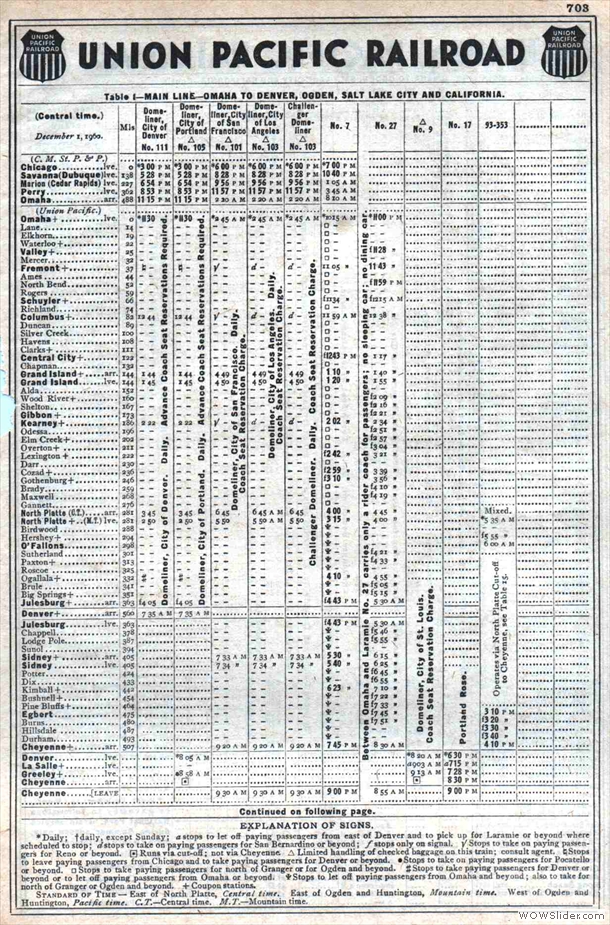 703
UNION PACIFIC
UNION PACIFIC RAILROAD
UNION PACIFIC
Table 1—MAIN LINE—OMAHA TO DENVER, OGDEN, SALT LAKE CITY AND CALIFORNIA.
(Central time.) Mls Domeliner, City of Denver Domeliner, City of Portland Domeliner, City of San Francisco Domeliner, City of Los Angeles Challenger Domeliner No. 7 No. 27 △ No. 9 No. 17 93-353
December 1, 1960. No. 111 No. 105 No. 101 No. 103 No. 103
(C. M. St. P. & P.)
Chicago lve. 0 *3 00 PM *3 00 PM *6 00 PM *6 00 PM *6 00 PM *7 00 PM
Savanna (Dubuque) lve. 138 5 28 PM 5 28 PM 8 28 PM 8 28 PM 8 28 PM 10 40 PM
Marion (Cedar Rapids) lve. 227 6 54 PM 6 54 PM 9 56 PM 9 56 PM 9 56 PM 1 05 AM
Perry lve. 362 8 53 PM 8 53 PM 11 57 PM 11 57 PM 11 57 PM 3 45 AM
Omaha arr. 488 11 15 PM 11 15 PM 2 20 AM 2 20 AM 2 20 AM 8 10 AM
(Union Pacific.)
Omaha + lve. 0 *1130 *1130 *2 45 AM *2 45 AM *2 45 AM *1015 AM *1100 PM
Lane 14
Elkhorn 19
Waterloo + 22
Valley + 25 f1128 "
Mercer 32
Fremont + 37 11 05 " 11 43 "
Ames 44
North Bend 52 f1159 PM
Rogers 59
Schuyler + 66 f1134 " f1215 AM
Richland 74
Columbus + 82 12 44 12 44 11 59 AM 12 38 "
Duncan 89
Silver Creek 100
Havens 108
Clarks + 111
Central City + 122 f1243 PM 1 17 "
Chapman 132
Grand Island + arr. 144 1 44 1 44 4 49 4 49 4 49 1 10 1 40 "
Grand Island lve. 144 1 45 1 45 4 50 4 50 4 50 1 20 1 55 "
Alda 152
Wood River + 160 f2 09 "
Shelton 167 f2 16 "
Gibbon + 173 f2 21 "
Kearney + 186 2 22 2 22 2 02 " 2 34 "
Odessa 196 f2 51 "
Elm Creek + 202 f2 57 "
Overton + 211 f3 04 "
Lexington + 222 f242 3 21 "
Darr 230
Cozad + 236 f259 3 39 "
Gothenburg + 246 f3 10 3 56 "
Brady 259 f4 10 "
Maxwell 268 f4 19 "
Gannett 276
North Platte (C.T.) arr. 281 3 45 3 45 6 45 AM 6 45 AM 6 45 4 00 4 45 " Mixed.
North Platte + (M.T.) lve. 281 2 50 2 50 5 50 5 50 AM 5 50 3 15 " 4 00 " *5 35 AM
Birdwood 288
Hershey + 294 f5 55 "
O'Fallons 298 6 00 AM
Sutherland 301 f4 21 "
Paxton + 313 f4 33 "
Roscoe 325
Ogallala + 332 4 10 " 4 55 "
Brule 341 f5 05 "
Big Springs + 351 f5 15 "
Julesburg + arr. 363 f4 05 f4 05 f4 43 PM 5 30 AM
Denver + arr. 560 7 35 AM 7 35 AM
Julesburg lve. 363 f4 43 PM 5 30 AM
Chappell 378 f5 46 "
Lodge Pole 387 f5 55 "
Sunol 394
Sidney + arr. 405 7 33 AM 7 33 AM 7 33 AM 5 30 6 15 "
Sidney lve. 405 7 34 " 7 34 " 7 34 " 5 40 " 6 25 "
Potter 424 f6 45 "
Dix 433 f6 55 "
Kimball + 442 6 25 " 7 10 "
Bushnell + 454 f7 22 "
Pine Bluffs + 464 f7 33 "
Egbert 475 f7 45 " 3 10 PM
Burns 480 f7 51 " f3 20 "
Hillsdale 487 f3 30 "
Durham 493 f3 40 "
Cheyenne + arr. 507 9 20 AM 9 20 AM 9 20 AM 7 45 PM 8 30 AM 4 10 PM
Denver lve. *8 05 AM *8 20 AM *6 30 PM
La Salle + lve. a903 AM a715 PM
Greeley + lve. 8 58 AM 9 13 AM 7 28 PM
Cheyenne arr. 8 30 PM
Cheyenne [LEAVE 9 30 AM 9 30 AM 9 30 AM 9 00 PM 8 55 AM 9 00 PM
Domeliner, City of Denver. Daily. Advance Coach Seat Reservations Required.
Domeliner, City of Portland. Daily. Advance Coach Seat Reservations Required.
Domeliner, City of San Francisco. Daily.
Coach Seat Reservation Charge.
Domeliner, City of Los Angeles. Daily.
Coach Seat Reservation Charge.
Challenger Domeliner. Daily. Coach Seat Reservation Charge.
Between Omaha and Laramie No. 27 carries only a rider coach for passengers; no sleeping car; no dining car.
Domeliner, City of St. Louis.
Coach Seat Reservation Charge.
Portland Rose.
Operates via North Platte Cut-off
to Cheyenne, see Table 15.
Continued on following page.
EXPLANATION OF SIGNS.
*Daily; †daily, except Sunday; a stops to let off paying passengers from east of Denver and to pick up for Laramie or beyond where
scheduled to stop; d stops to take on paying passengers for San Bernardino or beyond; f stops only on signal. y Stops to take on paying passen-
gers for Reno or beyond. ⊡ Runs via cut-off; not via Cheyenne. △ Limited handling of checked baggage on this train; consult agent. Stops
to leave paying passengers from Chicago and to take paying passengers for Denver or beyond. ● Stops to take on paying passengers for Pocatello
or beyond. □ Stops to take paying passengers for north of Granger or for Ogden and beyond. Stops to take paying passengers for Denver or
beyond or to let off paying passengers from Omaha or beyond. Stops to let off paying passengers from Omaha and beyond; also to take for
north of Granger or Ogden and beyond. + Coupon stations.
STANDARD OF TIME—East of North Platte, Central time. East of Ogden and Huntington, Mountain time. West of Ogden and
Huntington, Pacific time. C.T.—Central time. M.T.—Mountain time.
WOWSlider.com